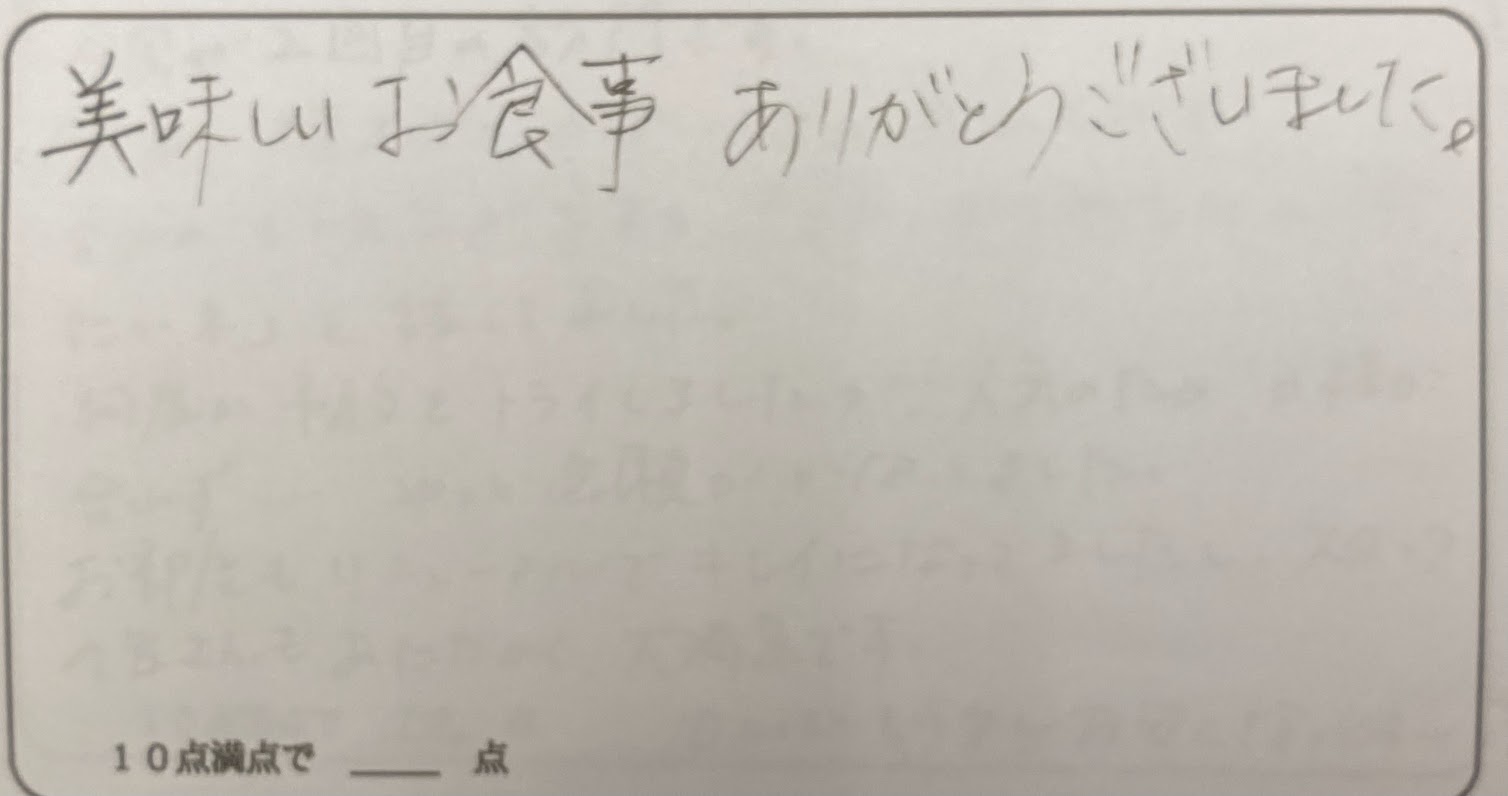 美味しいお食事 ありがとうございました。
10点満点で ____ 点